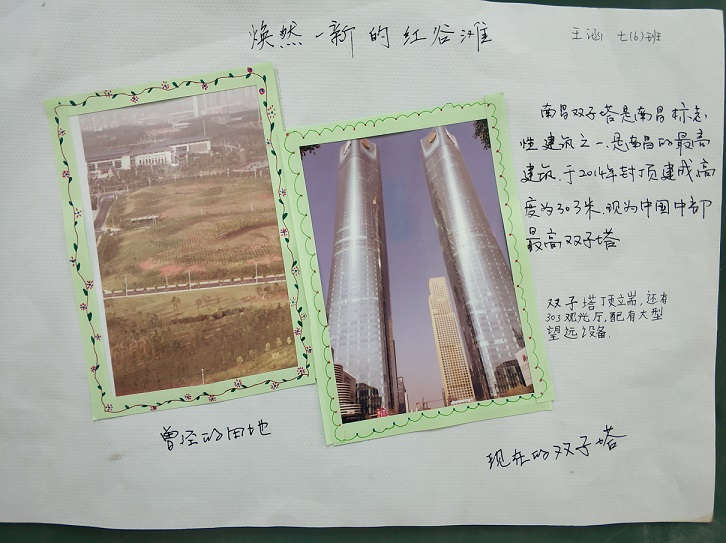 焕然一新的红谷滩
王涵 七(6)班
南昌双子塔是南昌标志
性建筑之一.是南昌的最高
建筑.于2014年封顶建成,高
度为303米.现为中国中部
最高双子塔
双子塔顶端,还有
303观光厅,配有大型
望远设备.
曾经的田地
现在的双子塔